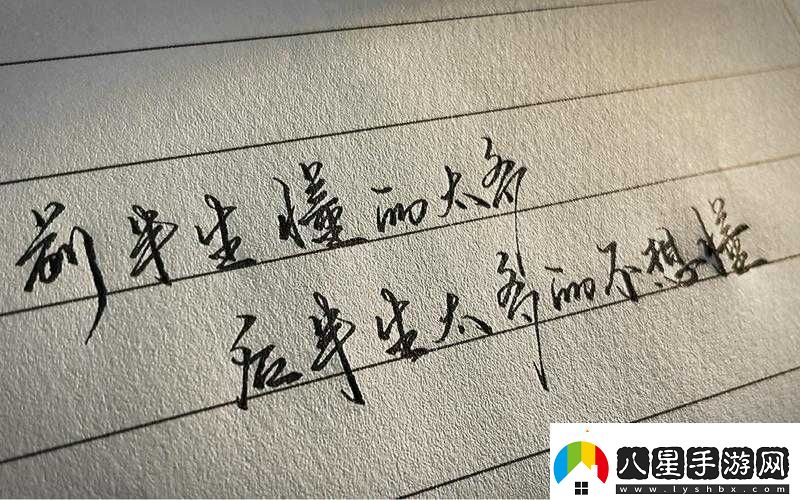 前半生懂的太多
后半生太多的不想懂
八星手游网
www.lyshbx.com